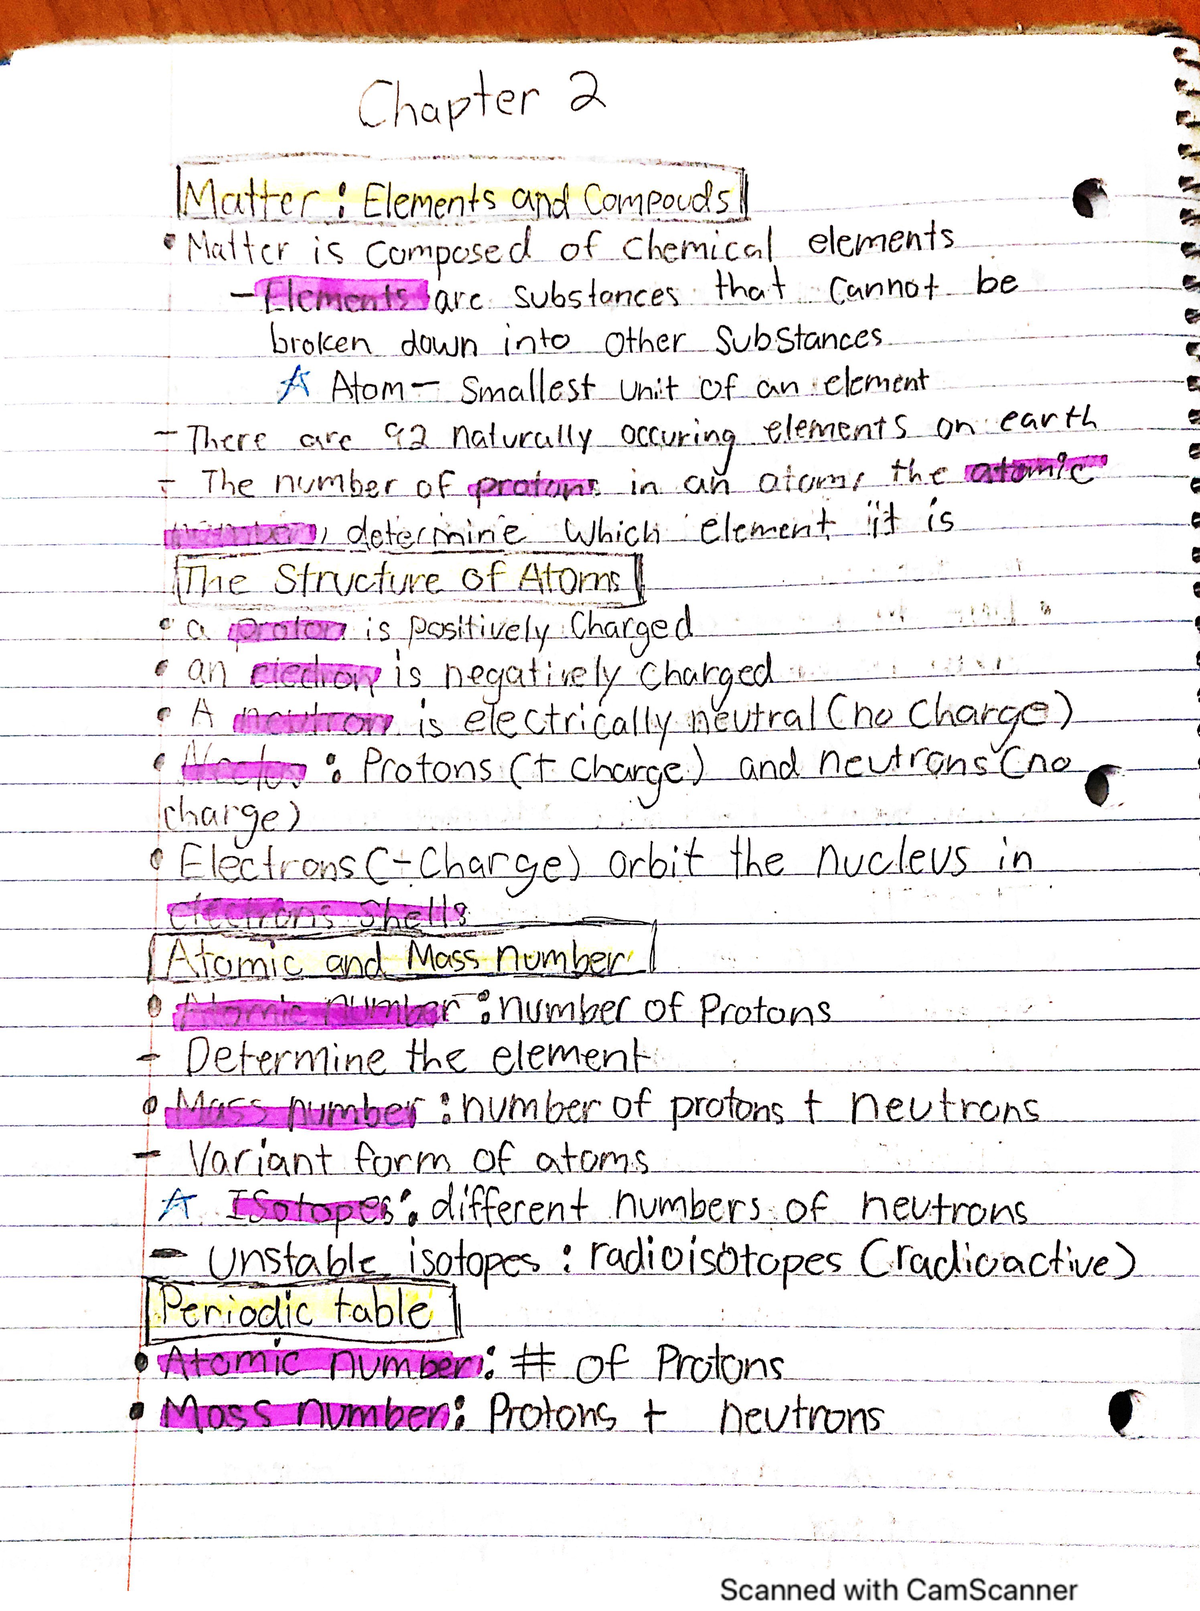 Chapter 2
Matter: Elements and Compouds
• Matter is composed of chemical elements
- Elements are substances that cannot be
broken down into other substances
☆ Atom - smallest unit of an element
- There are 92 naturally occuring elements on earth
- The number of protons in an atom, the atomic
number, determine which element it is
The Structure of Atoms
• a proton is positively charged
• an electron is negatively charged
• A neutron is electrically neutral (no charge)
• : Protons (+ charge) and neutrons (no
charge)
• Electrons (- charge) orbit the nucleus in
electrons shells
Atomic and Mass number
• Atomic number: number of Protons
- Determine the element
• Mass number: number of protons + neutrons
- Variant form of atoms
☆ Isotopes: different numbers of neutrons
- Unstable isotopes: radioisotopes (radioactive)
Periodic table
• Atomic number: # of Protons
• Mass number: Protons + neutrons
Scanned with CamScanner